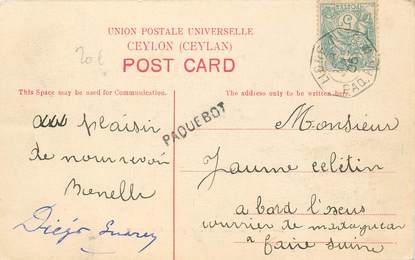 UNION POSTALE UNIVERSELLE
CEYLON (CEYLAN)
POST CARD
20 €
This Space may be used for Communication.
The address only to be written here.
PAQUEBOT
au plaisir
de nous revoir
Benelli
Diégo Suarez
Monsieur
Jaume Célétin
a bord l'
courrier de madagascar
a faire suivre